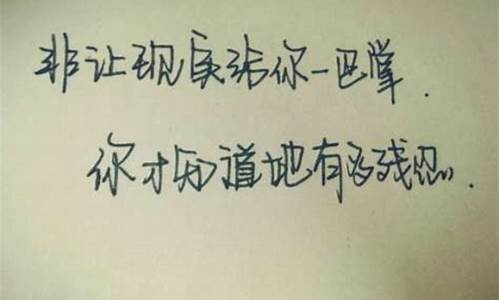 非让现实给你一巴掌.
你才知道地有多残忍.